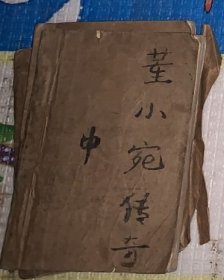 董小宛传奇
中